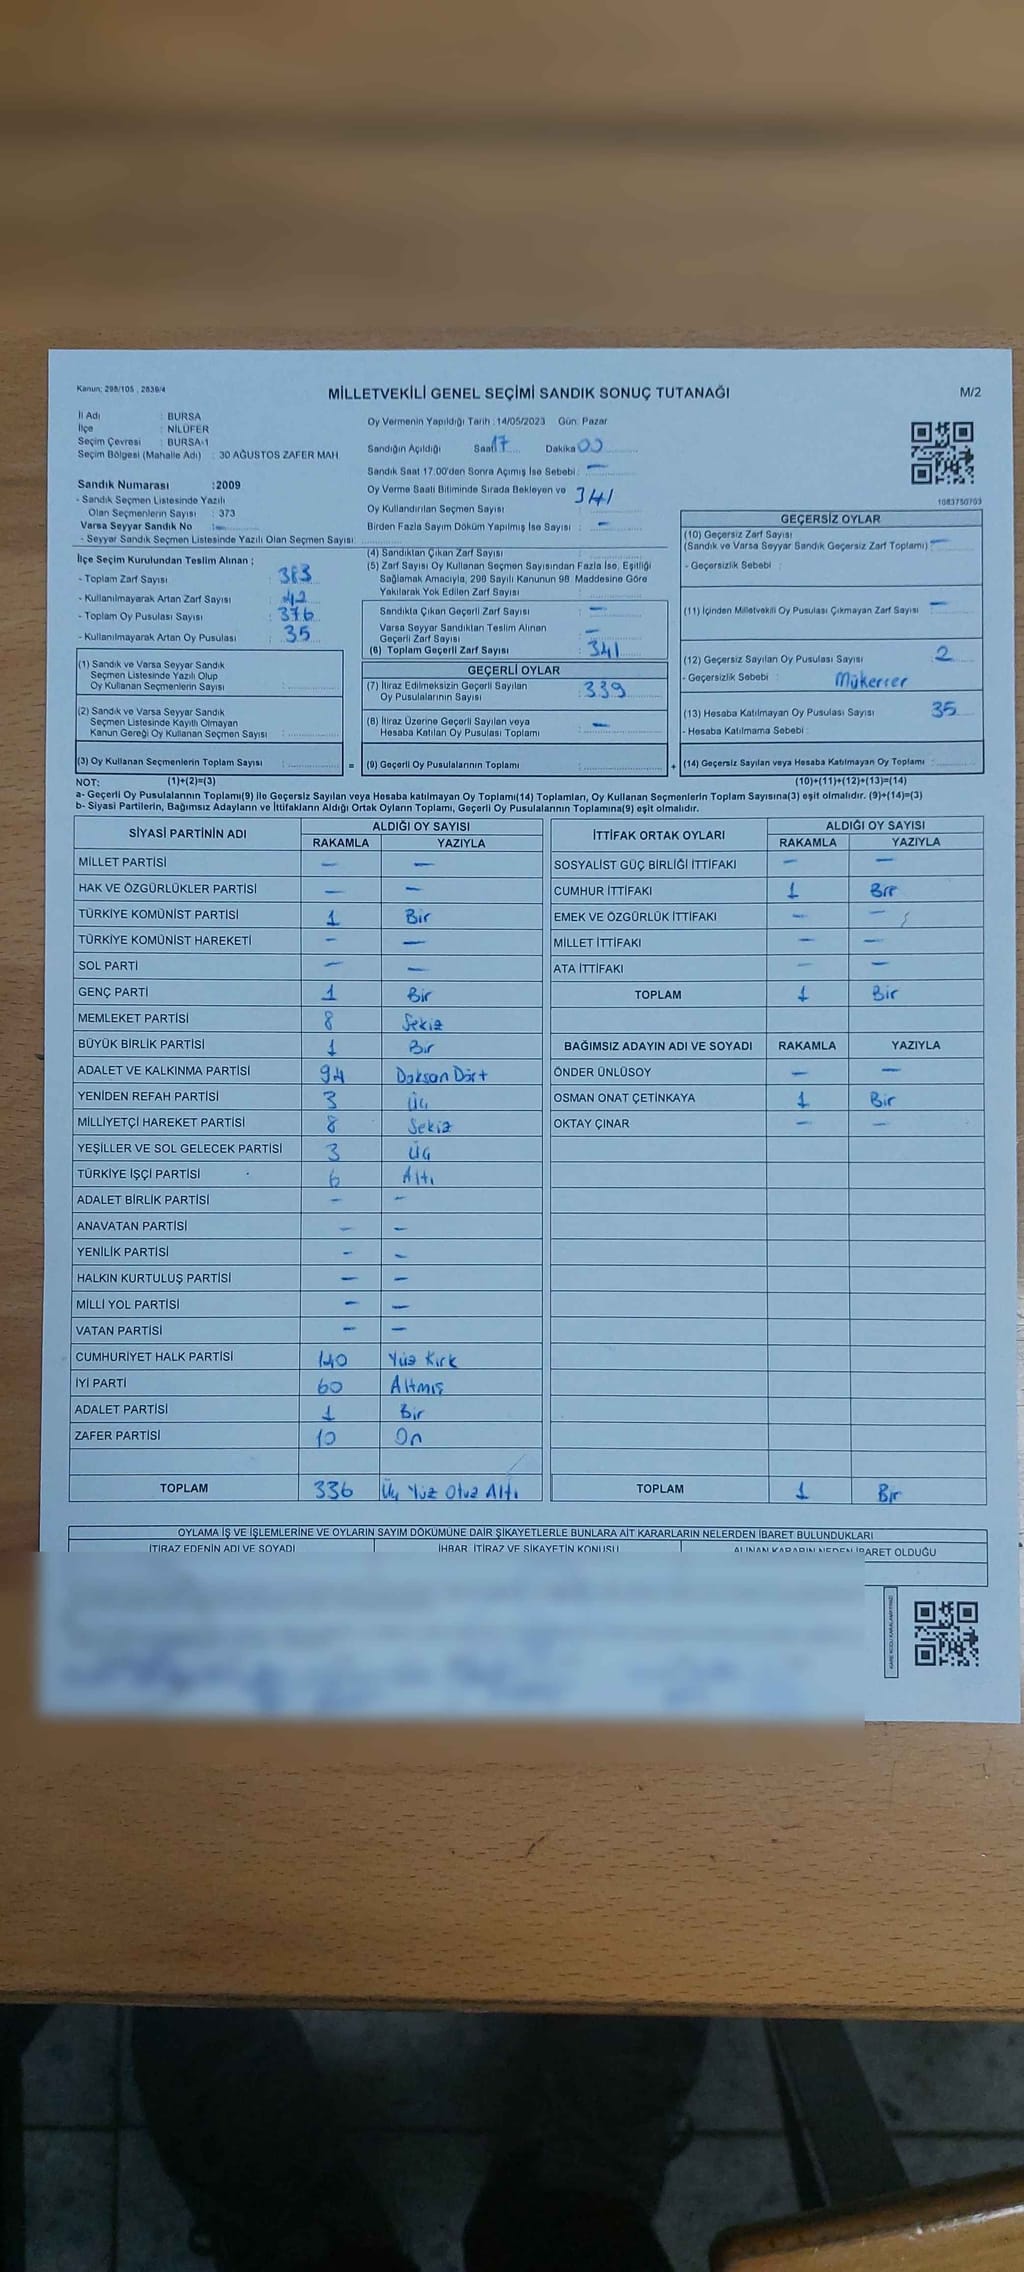 Kanun: 298/105 , 2839/4
MİLLETVEKİLİ GENEL SEÇİMİ SANDIK SONUÇ TUTANAĞI
M/2
İl Adı : BURSA
İlçe : NİLÜFER
Seçim Çevresi : BURSA-1
Seçim Bölgesi (Mahalle Adı) : 30 AĞUSTOS ZAFER MAH.
Sandık Numarası :2009
- Sandık Seçmen Listesinde Yazılı
Olan Seçmenlerin Sayısı : 373
Varsa Seyyar Sandık No : —
- Seyyar Sandık Seçmen Listesinde Yazılı Olan Seçmen Sayısı :
Oy Vermenin Yapıldığı Tarih : 14/05/2023 Gün: Pazar
Sandığın Açıldığı Saat 17 Dakika 00
Sandık Saat 17:00'den Sonra Açımış İse Sebebi : —
Oy Verme Saati Bitiminde Sırada Bekleyen ve
Oy Kullandırılan Seçmen Sayısı : 341
Birden Fazla Sayım Döküm Yapılmış İse Sayısı : —
1083750703
İlçe Seçim Kurulundan Teslim Alınan ;
- Toplam Zarf Sayısı : 383
- Kullanılmayarak Artan Zarf Sayısı : 42
- Toplam Oy Pusulası Sayısı : 376
- Kullanılmayarak Artan Oy Pusulası : 35
(1) Sandık ve Varsa Seyyar Sandık
Seçmen Listesinde Yazılı Olup
Oy Kullanan Seçmenlerin Sayısı :
(2) Sandık ve Varsa Seyyar Sandık
Seçmen Listesinde Kayıtlı Olmayan
Kanun Gereği Oy Kullanan Seçmen Sayısı :
(3) Oy Kullanan Seçmenlerin Toplam Sayısı : =
(4) Sandıktan Çıkan Zarf Sayısı :
(5) Zarf Sayısı Oy Kullanan Seçmen Sayısından Fazla İse, Eşitliği
Sağlamak Amacıyla, 298 Sayılı Kanunun 98. Maddesine Göre
Yakılarak Yok Edilen Zarf Sayısı :
Sandıkta Çıkan Geçerli Zarf Sayısı : —
Varsa Seyyar Sandıktan Teslim Alınan
Geçerli Zarf Sayısı : —
(6) Toplam Geçerli Zarf Sayısı : 341
GEÇERLİ OYLAR
(7) İtiraz Edilmeksizin Geçerli Sayılan
Oy Pusulalarının Sayısı : 339
(8) İtiraz Üzerine Geçerli Sayılan veya
Hesaba Katılan Oy Pusulası Toplamı : —
(9) Geçerli Oy Pusulalarının Toplamı : +
GEÇERSİZ OYLAR
(10) Geçersiz Zarf Sayısı
(Sandık ve Varsa Seyyar Sandık Geçersiz Zarf Toplamı) : —
- Geçersizlik Sebebi :
(11) İçinden Milletvekili Oy Pusulası Çıkmayan Zarf Sayısı : —
(12) Geçersiz Sayılan Oy Pusulası Sayısı : 2
- Geçersizlik Sebebi : Mükerrer
(13) Hesaba Katılmayan Oy Pusulası Sayısı : 35
- Hesaba Katılmama Sebebi :
(14) Geçersiz Sayılan veya Hesaba Katılmayan Oy Toplamı :
NOT: (1)+(2)=(3) (10)+(11)+(12)+(13)=(14)
a- Geçerli Oy Pusulalarının Toplamı(9) ile Geçersiz Sayılan veya Hesaba katılmayan Oy Toplamı(14) Toplamları, Oy Kullanan Seçmenlerin Toplam Sayısına(3) eşit olmalıdır. (9)+(14)=(3)
b- Siyasi Partilerin, Bağımsız Adayların ve İttifakların Aldığı Ortak Oyların Toplamı, Geçerli Oy Pusulalarının Toplamına(9) eşit olmalıdır.
SİYASİ PARTİNİN ADI ALDIĞI OY SAYISI
RAKAMLA YAZIYLA
MİLLET PARTİSİ — —
HAK VE ÖZGÜRLÜKLER PARTİSİ — —
TÜRKİYE KOMÜNİST PARTİSİ 1 Bir
TÜRKİYE KOMÜNİST HAREKETİ — —
SOL PARTİ — —
GENÇ PARTİ 1 Bir
MEMLEKET PARTİSİ 8 Sekiz
BÜYÜK BİRLİK PARTİSİ 1 Bir
ADALET VE KALKINMA PARTİSİ 94 Doksan Dört
YENİDEN REFAH PARTİSİ 3 Üç
MİLLİYETÇİ HAREKET PARTİSİ 8 Sekiz
YEŞİLLER VE SOL GELECEK PARTİSİ 3 Üç
TÜRKİYE İŞÇİ PARTİSİ 6 Altı
ADALET BİRLİK PARTİSİ — —
ANAVATAN PARTİSİ — —
YENİLİK PARTİSİ — —
HALKIN KURTULUŞ PARTİSİ — —
MİLLİ YOL PARTİSİ — —
VATAN PARTİSİ — —
CUMHURİYET HALK PARTİSİ 140 Yüz Kırk
İYİ PARTİ 60 Altmış
ADALET PARTİSİ 1 Bir
ZAFER PARTİSİ 10 On
TOPLAM 336 Üç Yüz Otuz Altı
İTTİFAK ORTAK OYLARI ALDIĞI OY SAYISI
RAKAMLA YAZIYLA
SOSYALİST GÜÇ BİRLİĞİ İTTİFAKI — —
CUMHUR İTTİFAKI 1 Bir
EMEK VE ÖZGÜRLÜK İTTİFAKI — —
MİLLET İTTİFAKI — —
ATA İTTİFAKI — —
TOPLAM 1 Bir
BAĞIMSIZ ADAYIN ADI VE SOYADI RAKAMLA YAZIYLA
ÖNDER ÜNLÜSOY — —
OSMAN ONAT ÇETİNKAYA 1 Bir
OKTAY ÇINAR — —
TOPLAM 1 Bir
OYLAMA İŞ VE İŞLEMLERİNE VE OYLARIN SAYIM DÖKÜMÜNE DAİR ŞİKAYETLERLE BUNLARA AİT KARARLARIN NELERDEN İBARET BULUNDUKLARI
İTİRAZ EDENİN ADI VE SOYADI İHBAR, İTİRAZ VE ŞİKAYETİN KONUSU ALINAN KARARIN NEDEN İBARET OLDUĞU